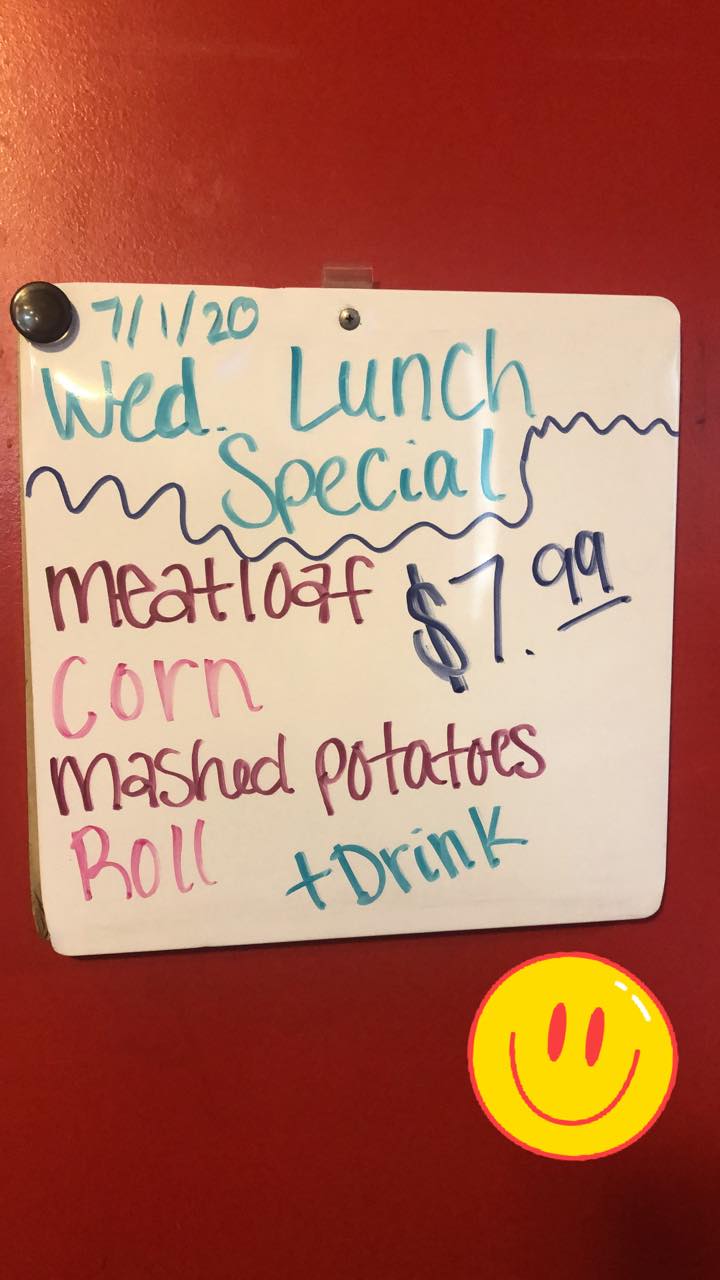 7/1/20
Wed. Lunch
Special
meatloaf $7.99
Corn
mashed potatoes
Roll +Drink